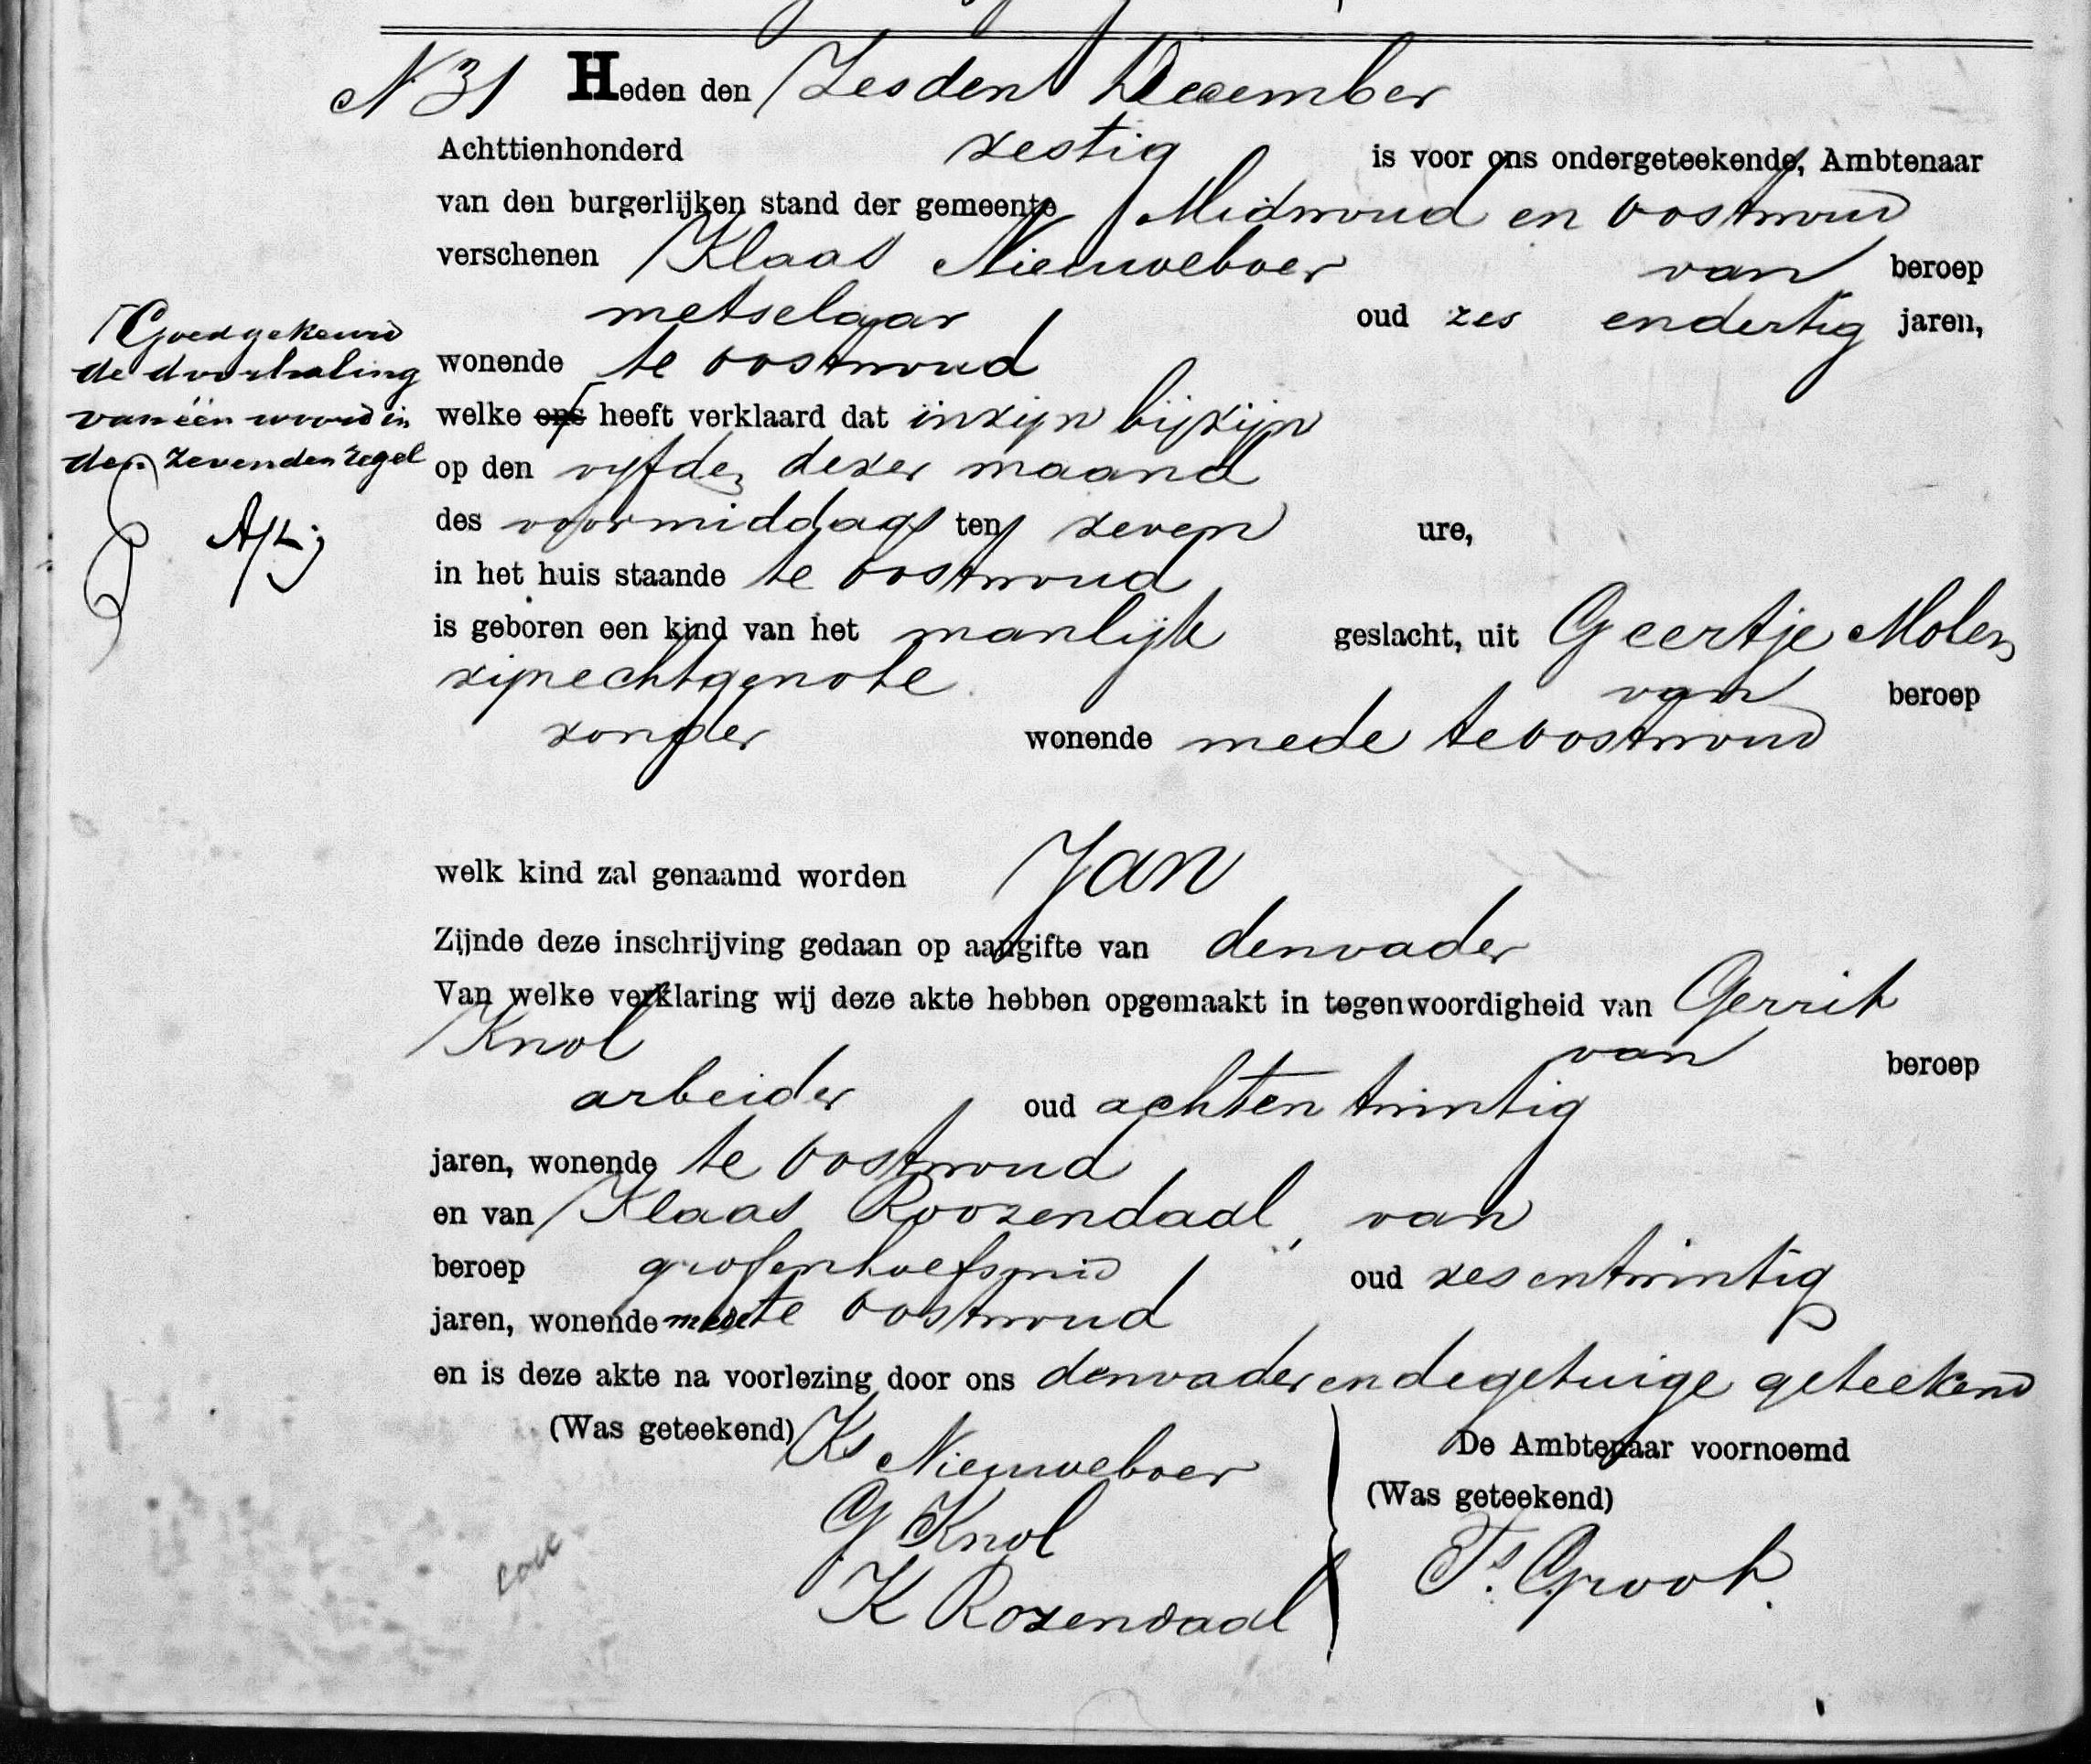 N 31 Heden den Zesden December
Achttienhonderd zestig is voor ons ondergeteekende, Ambtenaar
van den burgerlijken stand der gemeente Midwoud en Oostwoud
verschenen Klaas Nieuweboer van beroep
metselaar oud zes endertig jaren,
wonende te Oostwoud
welke ons heeft verklaard dat in zijn bijzijn
op den vyfden dezer maand
des voormiddags ten zeven ure,
in het huis staande te Oostwoud
is geboren een kind van het manlijk geslacht, uit Geertje Molen
zijn echtgenote van beroep
zonder wonende mede te Oostwoud
welk kind zal genaamd worden Jan
Zijnde deze inschrijving gedaan op aangifte van den vader
Van welke verklaring wij deze akte hebben opgemaakt in tegenwoordigheid van Gerrit
Knol van beroep
arbeider oud achten twintig
jaren, wonende te Oostwoud
en van Klaas Roozendaal, van
beroep grofenhoefsmid oud zesentwintig
jaren, wonende mede te Oostwoud
en is deze akte na voorlezing door ons den vader en de getuige geteekend
(Was geteekend) Ks Nieuweboer
G Knol
K Rozendaal
De Ambtenaar voornoemd
(Was geteekend)
Ps. Groot.
Goedgekeurd
de doorhaling
van één woord in
den zevenden regel